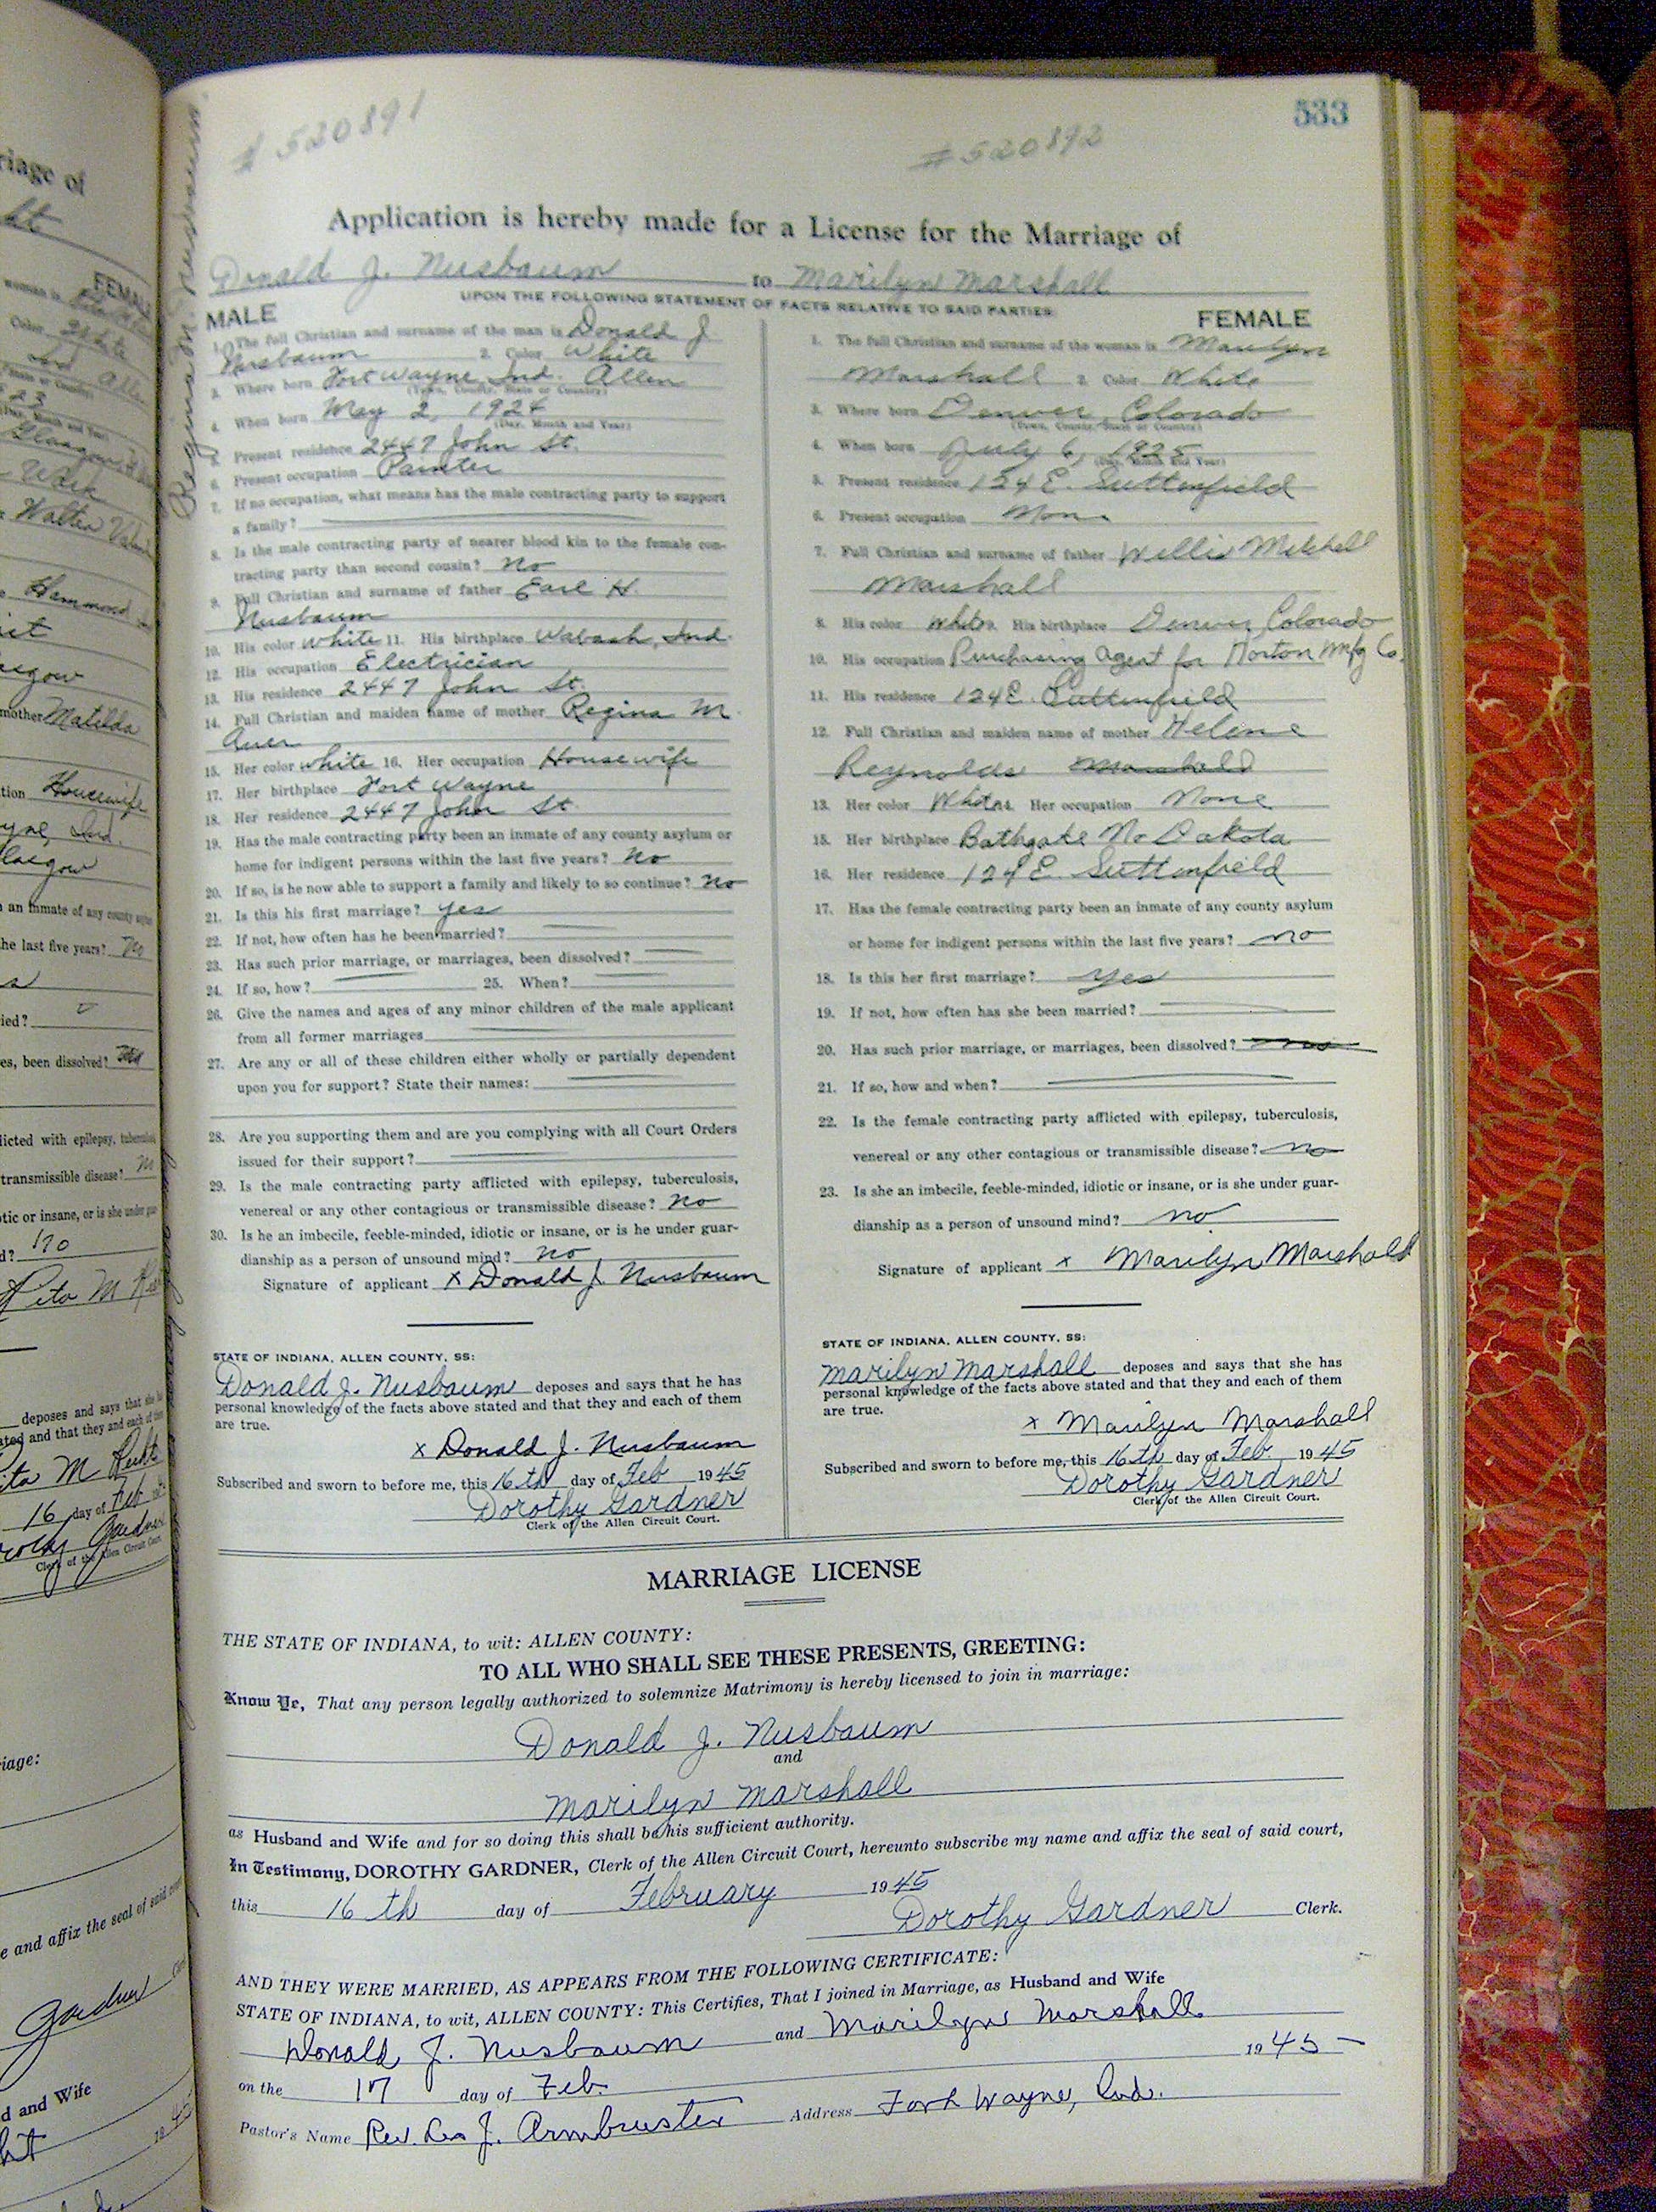 533
# 520891
# 520892
Application is hereby made for a License for the Marriage of
Donald J. Nusbaum to Marilyn Marshall
UPON THE FOLLOWING STATEMENT OF FACTS RELATIVE TO SAID PARTIES:
MALE
1. The full Christian and surname of the man is Donald J.
Nusbaum 2. Color White
3. Where born Fort Wayne Ind. Allen
(Town, County, State or Country)
4. When born May 2, 1924
(Day, Month and Year)
5. Present residence 2447 John St.
6. Present occupation Painter
7. If no occupation, what means has the male contracting party to support
a family?
8. Is the male contracting party of nearer blood kin to the female con-
tracting party than second cousin? No
9. Full Christian and surname of father Earl H.
Nusbaum
10. His color White 11. His birthplace Wabash, Ind.
12. His occupation Electrician
13. His residence 2447 John St.
14. Full Christian and maiden name of mother Regina M
Auer
15. Her color white 16. Her occupation Housewife
17. Her birthplace Fort Wayne
18. Her residence 2447 John St
19. Has the male contracting party been an inmate of any county asylum or
home for indigent persons within the last five years? No
20. If so, is he now able to support a family and likely to so continue? No
21. Is this his first marriage? yes
22. If not, how often has he been married?
23. Has such prior marriage, or marriages, been dissolved?
24. If so, how? 25. When?
26. Give the names and ages of any minor children of the male applicant
from all former marriages
27. Are any or all of these children either wholly or partially dependent
upon you for support? State their names:
28. Are you supporting them and are you complying with all Court Orders
issued for their support?
29. Is the male contracting party afflicted with epilepsy, tuberculosis,
venereal or any other contagious or transmissible disease? No
30. Is he an imbecile, feeble-minded, idiotic or insane, or is he under guar-
dianship as a person of unsound mind? No
Signature of applicant x Donald J. Nusbaum
STATE OF INDIANA, ALLEN COUNTY, SS:
Donald J. Nusbaum deposes and says that he has
personal knowledge of the facts above stated and that they and each of them
are true.
x Donald J. Nusbaum
Subscribed and sworn to before me, this 16th day of Feb 1945
Dorothy Gardner
Clerk of the Allen Circuit Court.
FEMALE
1. The full Christian and surname of the woman is Marilyn
Marshall 2. Color White
3. Where born Denver, Colorado
(Town, County, State or Country)
4. When born July 6, 1925
(Day, Month and Year)
5. Present residence 124 E. Suttenfield
6. Present occupation None
7. Full Christian and surname of father Willis Mitchell
Marshall
8. His color White 9. His birthplace Denver, Colorado
10. His occupation Purchasing Agent for Horton Mfg Co.
11. His residence 124 E. Suttenfield
12. Full Christian and maiden name of mother Helene
Reynolds Marshall
13. Her color White 14. Her occupation None
15. Her birthplace Bathgate No Dakota
16. Her residence 124 E. Suttenfield
17. Has the female contracting party been an inmate of any county asylum
or home for indigent persons within the last five years? no
18. Is this her first marriage? yes
19. If not, how often has she been married?
20. Has such prior marriage, or marriages, been dissolved?
21. If so, how and when?
22. Is the female contracting party afflicted with epilepsy, tuberculosis,
venereal or any other contagious or transmissible disease? no
23. Is she an imbecile, feeble-minded, idiotic or insane, or is she under guar-
dianship as a person of unsound mind? no
Signature of applicant x Marilyn Marshall
STATE OF INDIANA, ALLEN COUNTY, SS:
Marilyn Marshall deposes and says that she has
personal knowledge of the facts above stated and that they and each of them
are true.
x Marilyn Marshall
Subscribed and sworn to before me, this 16th day of Feb. 1945
Dorothy Gardner
Clerk of the Allen Circuit Court.
MARRIAGE LICENSE
THE STATE OF INDIANA, to wit: ALLEN COUNTY:
TO ALL WHO SHALL SEE THESE PRESENTS, GREETING:
Know Ye, That any person legally authorized to solemnize Matrimony is hereby licensed to join in marriage:
Donald J. Nusbaum
and
Marilyn Marshall
as Husband and Wife and for so doing this shall be his sufficient authority.
In Testimony, DOROTHY GARDNER, Clerk of the Allen Circuit Court, hereunto subscribe my name and affix the seal of said court,
this 16th day of February 1945
Dorothy Gardner Clerk.
AND THEY WERE MARRIED, AS APPEARS FROM THE FOLLOWING CERTIFICATE:
STATE OF INDIANA, to wit, ALLEN COUNTY: This Certifies, That I joined in Marriage, as Husband and Wife
Donald J. Nusbaum and Marilyn Marshall
on the 17 day of Feb. 1945
Pastor's Name Rev. Leo J. Armbruster Address Fort Wayne, Ind.
Regina M. Nusbaum